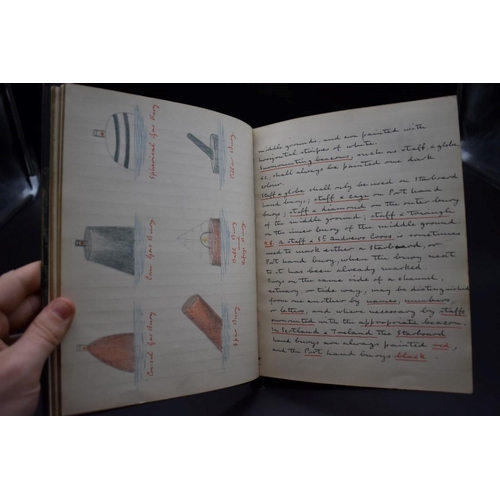 Spherical Gas Buoy
Can Gas Buoy
Conical Gas Buoy
Pillar Buoy
Bell Buoy
Spar Buoy
middle grounds, and are painted with
horizontal stripes of white.
Surmounting beacons, such as staff & globe
&c, shall always be painted one dark
colour.
Staff & globe shall only be used on Starboard
hand buoys; staff & cage on Port hand
buoys; staff & diamond on the outer buoy
of the middle ground; staff & triangle
on the inner buoy of the middle ground.
A staff & St Andrews cross is sometimes
used to mark either a Starboard, or
Port hand buoy, when the buoy next
to it has been already marked
Buoys on the same side of a channel,
estuary, or tide way, may be distinguished
from one another by names, numbers,
or letters, and where necessary by staffs
surmounted with the appropriate beacon.
In Scotland & Ireland the Starboard
hand buoys are always painted red,
and the Port hand buoys black.